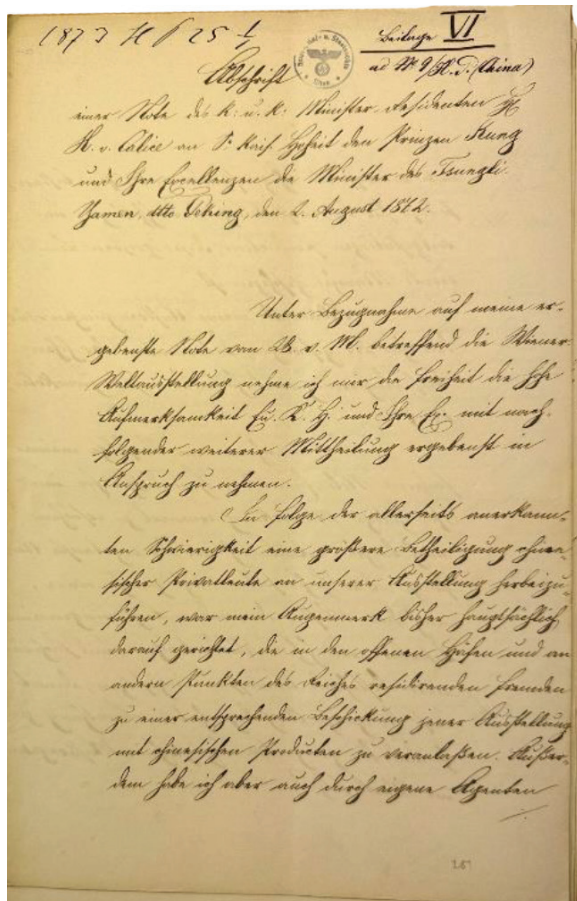 Beilage VI
ad № 9/H. D. (China)
Abschrift
einer Note des k: u: k: Minister-Residenten H
H. v. Calice an S: Kais. Hoheit den Prinzen Kung
und Ihre Excellenzen die Minister des Tsungli-
Yamen, dto Peking, den 2. August 1872.
Unter Bezugnahme auf meine er-
gebenste Note vom v. M. betreffend die Wiener
Weltausstellung nehme ich mir die Freiheit die hohe
Aufmerksamkeit Eu. K. H. und Ihre Ex. mit nach-
folgender weiterer Mittheilung ergebenst in
Anspruch zu nehmen.
In Folge der allerseits anerkann-
ten Schwierigkeit eine größere Betheiligung chine-
sischer Privatleute an unserer Ausstellung herbeizu-
führen, war mein Augenmerk bisher hauptsächlich
darauf gerichtet, die in den offenen Häfen und an
andern Punkten des Reiches residirenden Fremden
zu einer entsprechenden Beschickung jener Ausstellung
mit chinesischen Producten zu veranlaßen. Außer-
dem habe ich aber auch durch eigene Agenten